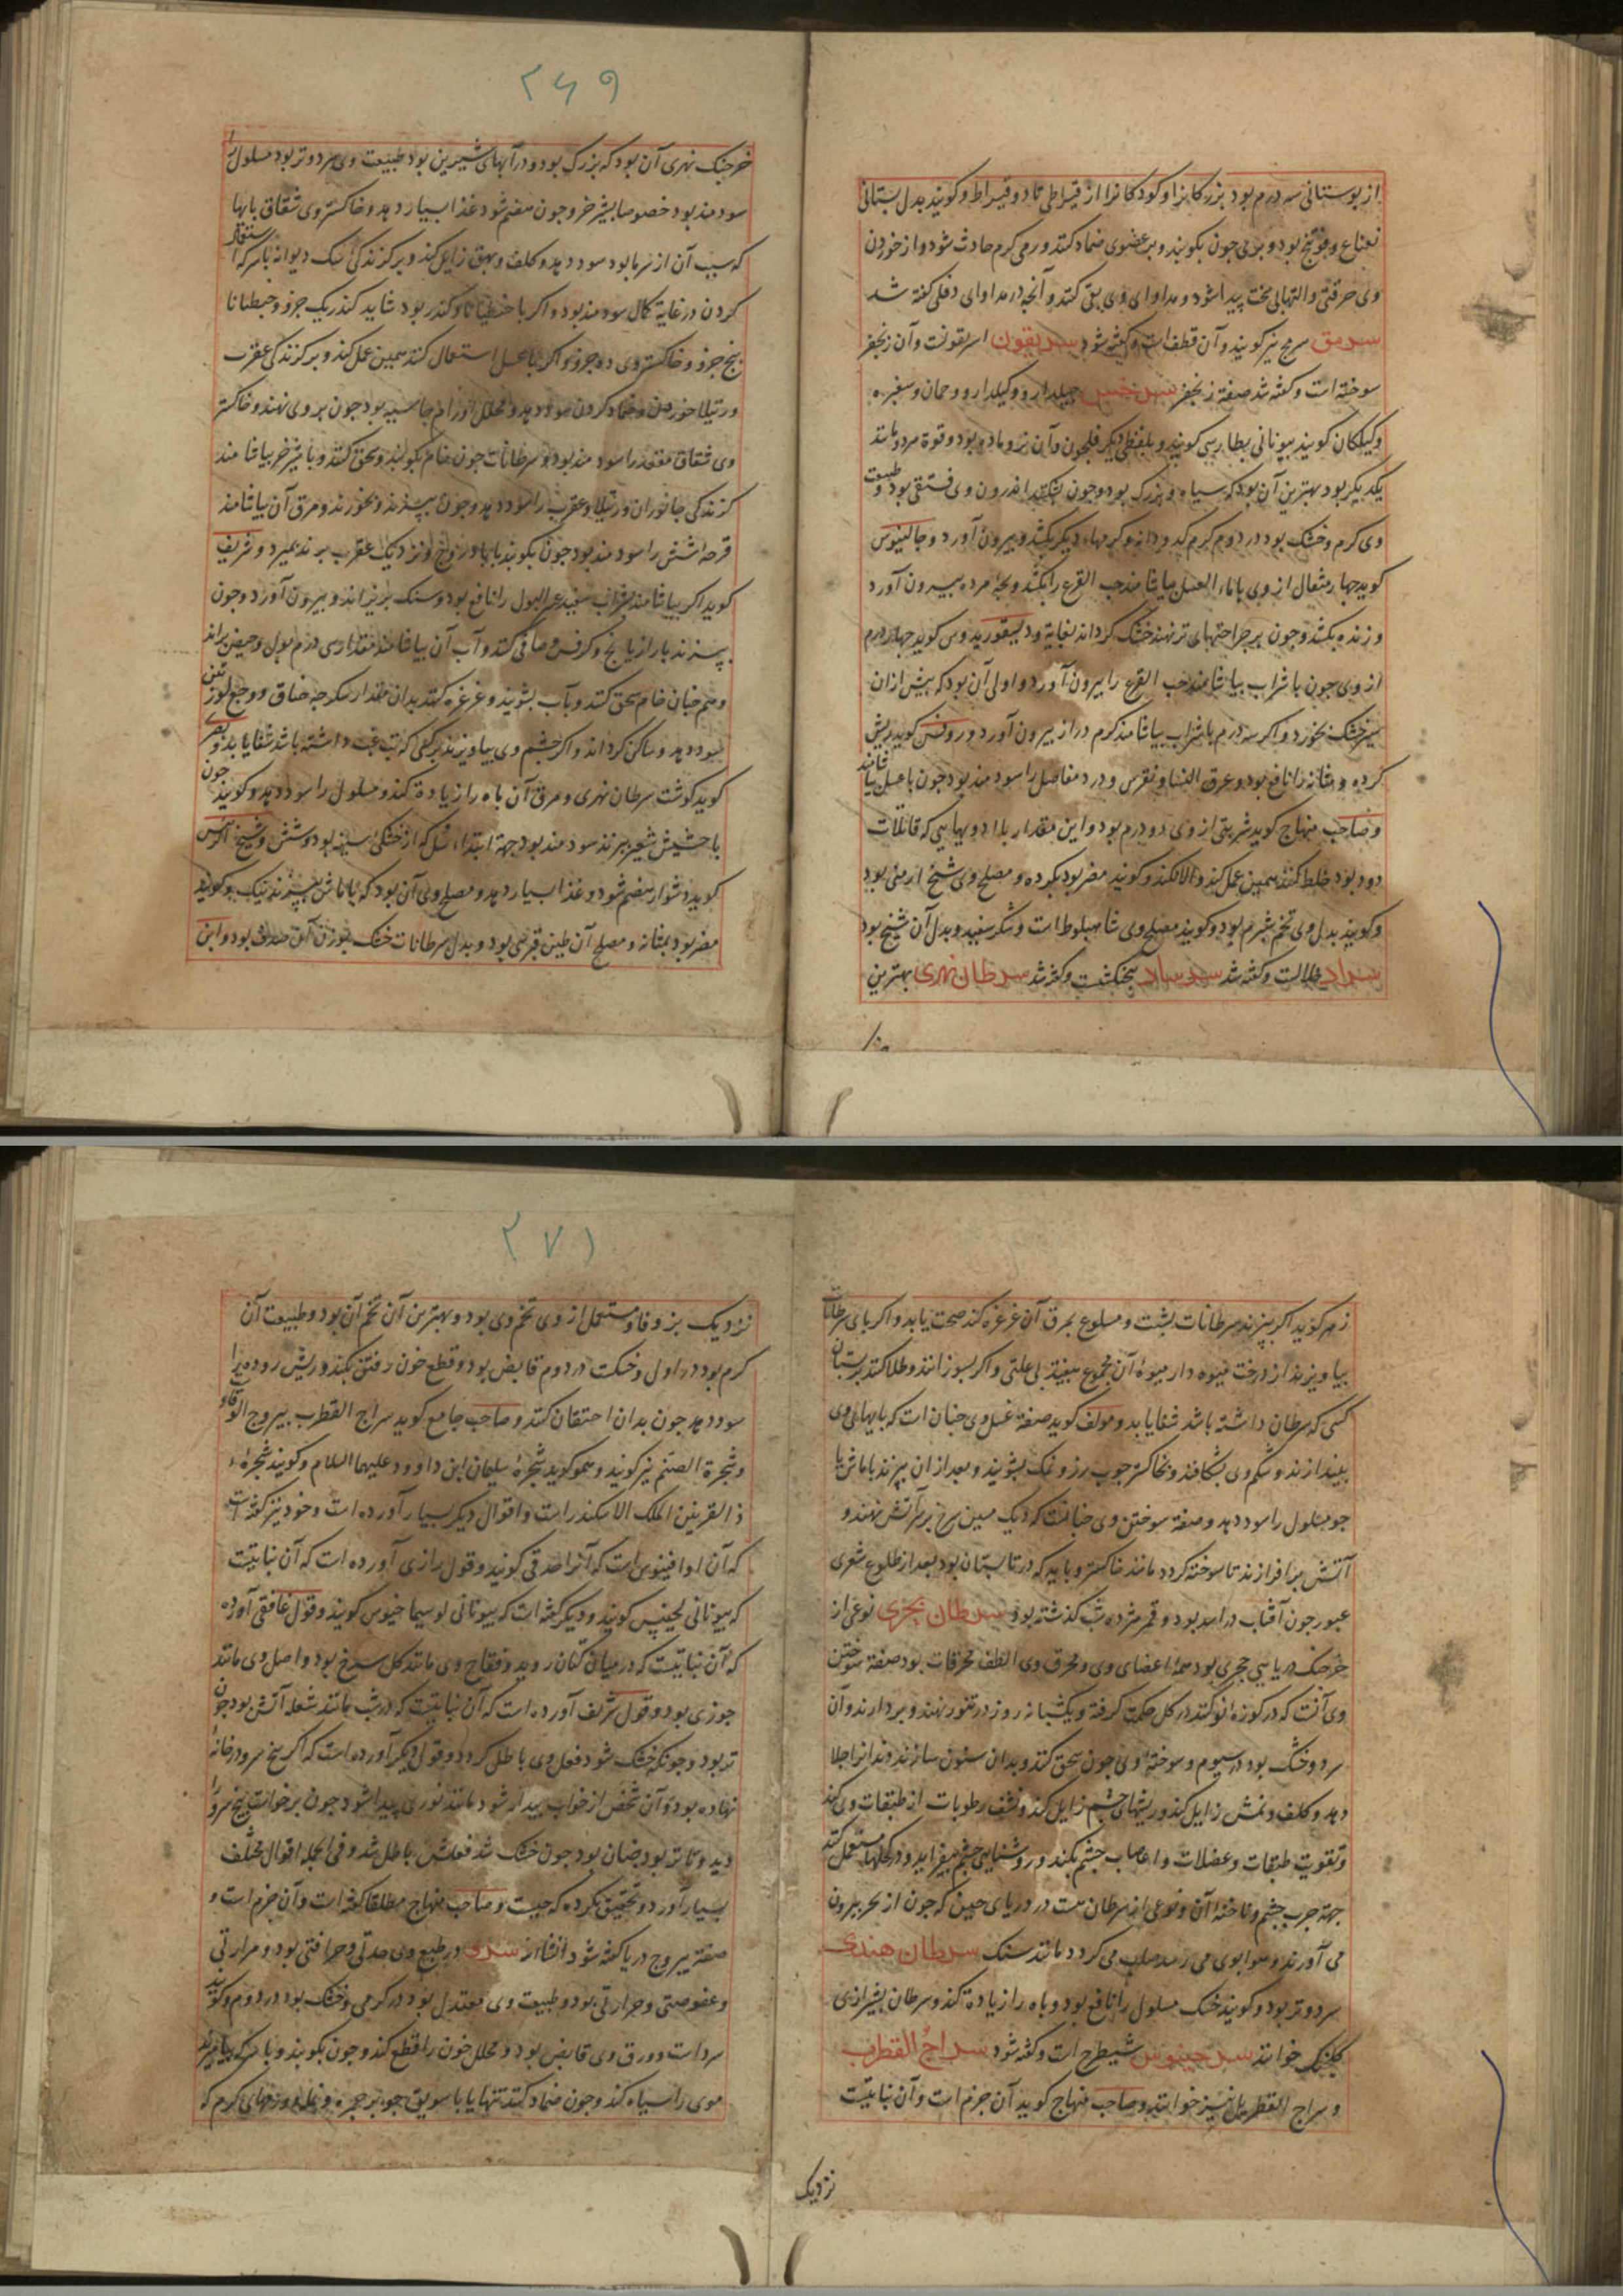 از بوستانی سه درم بود بزرکانرا و کودکانرا از قیراطی تا دو قیراط و کویند بدل بستانی
نعناع و فوتنج بود و بری چون بکویند و بر عضوی ضماد کنند ورمی کرم حادث شود و از خوردن
وی حرقتی و التهابی سخت پیدا شود و مداوای وی بقی کنند و آنچه در مداوای دفلی کفته شد
سرمق سرمج نیز کویند و آن قطف است و کفته شود سریقون اسریقونست و آن زنجفر
سوخته است و کفته شد صفة زنجفر سرخس جیلدارو و کیلدارو و
و کیلکان کویند بیونانی بطارس کویند و بلفظی دیکر فلجون و آن نر و ماده بود و قوة هر دو مانند
یکدیکر بود بهترین آن بود که سیاه و بزرک بود و چون بشکنند اندرون وی فستقی بود و طبیعت
وی کرم و خشک بود در دوم کرم کدو دانه و کرمهاء دیکر بکشد و بیرون آورد و جالینوس
کوید چهار مثقال از وی با ماء العسل بیاشامند حب القرع را بکشد و بچه مرده بیرون آورد
و زنده بکشد و چون بر جراحتهای تر نهند خشک کرداند بغایة و دیسقوریدوس کوید چهار درم
از وی چون با شراب بیاشامند حب القرع را بیرون آورد و اولی آن بود که پیش از آن
سیر خشک بخورد و اکر سه درم با شراب بیاشامند کرم دراز بیرون آورد و روفس کوید ریش
کرده و مثانه را نافع بود و عرق النسا و نقرس و درد مفاصل را سودمند بود چون با عسل بیاشامند
و صاحب منهاج کوید شربتی از وی دو درم بود و این مقدار با ادویهایی که قاتلات
دود بود خلط کنند همین عمل کند و الا نکند و کویند مضر بود بکرده و مصلح وی شیح ارمنی بود
و کویند بدل وی تخم شبرم بود و کویند مصلح وی شاهبلوط است و شکر سفید و بدل آن شیح بود
سراد خلالست و کفته شد سرساد پنجنکشت و کفته شد سرطان نهری بهترین
۲۶۹
خرچنک نهری آن بود که بزرک بود و در آبهای شیرین بود طبیعت وی سرد و تر بود مسلول را
سودمند بود خصوصا بشیر خر و چون هضم شود غذا بسیار دهد و خاکستر وی شقاق پایها
که سبب آن از سرما بود سود دهد و کلف و بهق زایل کند و بر کزندکی سک دیوانه با سرکه استعمال
کردن در غایة کمال سودمند بود و اکر با جنطیانا و کندر بود شاید کندر یک جزو و جنطیانا
پنج جزو و خاکستر وی ده جزو و اکر با عسل استعمال کنند همین عمل کند و بر کزندکی عقرب
و رتیلا خوردن و ضماد کردن سود دهد و محلل اورام جاسیه بود چون بر وی نهند و خاکستر
وی شقاق مقعد را سودمند بود و سرطانات چون خام بکویند و سحق کنند و با شیر خر بیاشامند
کزندکی جانوران و رتیلا و عقرب را سود دهد و چون بپزند و بخورند و مرق آن بیاشامند
قرحه شش را سودمند بود چون بکویند با بادروج و نزدیک عقرب برند بمیرد و شریف
کوید اکر بیاشامند بشراب سفید عسر البول را نافع بود و سنک بریزاند و بیرون آورد و چون
بپزند با رازیانج و کرفس و صافی کنند و آب آن بیاشامند مقدار سی درم بول و حیض براند
و همچنان خام سحق کنند و بآب بشویند و غرغره کنند بدان مقدار سکرجه خناق و وجع لوزتین
سود دهد و ساکن کرداند و اکر چشم وی بیاویزند بر کسی که تب غب داشته باشد شفا یابد و بصری
کوید کوشت سرطان نهری و مرق آن باه را زیاده کند و مسلول را سود دهد و کویند چون
با حشیش شعیر بپزند سودمند بود جهة ابتداء سل که از خشکی سینه بود و شش و شیخ الرئیس
کوید دشوار هضم شود و غذا بسیار دهد و مصلح وی آن بود که با ماش بپزند نیک بود و کویند
مضر بود بمثانه و مصلح آن طین قبرسی بود و بدل سرطانات خشک بوزن آن صدف بود و ابن
زهر کوید اکر بپزند سرطانات بشبت و مسلوع بمرق آن غرغره کند صحت یابد و اکر پای سرطانات
بیاویزند از درخت میوه دار میوه آن مجموع بیفتد بی علتی و اکر بسوزانند و طلا کنند بر پستان
کسی که سرطان داشته باشد شفا یابد و مولف کوید صفة غسل وی چنان است که پایهای وی
بیندازند و شکم وی بشکافند و بخاکستر چوب رز و نمک بشویند و بعد از آن بپزند با ماش یا
جو مسلول را سود دهد و صفة سوختن وی چنانست که دیک مسین سرخ بر سر آتش نهند و
آتش برافروزند تا سوخته کردد مانند خاکستر و باید که در تابستان بود بعد از طلوع شعری
عبور چون آفتاب در اسد بود و قمر هژده شب کذشته بود سرطان بحری نوعی از
خرچنک دریایی حجری بود همه اعضای وی و محرق وی الطف محرقات بود صفة سوختن
وی آنست که در کوزه نو کنند در کل حکمت کرفته و یکشبانه روز در تنور نهند و بردارند و آن
سرد و خشک بود در سیوم و سوخته وی چون سحق کنند و بدان سنون سازند دندانرا جلا
دهد و کلف و نمش زایل کند و ریشهای چشم زایل کند و نشف رطوبات از طبقات وی کند
و تقویت طبقات و عضلات و اعصاب چشم بکند و روشنایی چشم بیفزاید و در کحلها مستعمل کنند
جهة جرب چشم و ناخنه آن و نوعی از سرطان هست در دریای چین که چون از بحر بیرون
می آورند و هوا بوی می رسد صلب می کردد مانند سنک سرطان هندی
سرد و تر بود و کویند خشک مسلول را نافع بود و باه را زیاده کند و سرطان بشیرازی
خوانند سرجینوس شیطرج است و کفته شود سراج القطرب
و سراج القطربل نیز خوانند و صاحب منهاج کوید آن جزم است و آن نباتیست
نزدیک
۲۷۱
نزدیک بزوفا و مستعمل از وی تخم وی بود و بهترین آن تخم آن بود و طبیعت آن
کرم بود در اول و خشکست در دوم قابض بود و قطع خون رفتن بکند و ریش روده را
سود دهد چون بدان احتقان کنند و صاحب جامع کوید سراج القطرب یبروح الوقاد
و شجرة الصنم نیز کویند و هموکوید شجره سلیمان ابن داوود علیهما السلام و کویند شجرهء
ذالقرنین الملک الاسکندر است و اقوال دیکر بسیار آورده است و خود نیز کفته است
که آن اوافینوس است که آنرا حدقی کویند و قول رازی آورده است که آن نباتیست
که بیونانی لحینس کویند و دیکر کفته است که بیونانی لوسیماخیوس کویند و قول غافقی آورده
که آن نباتیست که در میان کتان روید و فقاح وی مانند کل سرخ بود و اصل وی مانند
جوزی بود و قول شریف آورده است که آن نباتیست که در شب مانند شعله آتش بود چون
تر بود و چونکه خشک شود فعل وی باطل کردد و قول دیکر آورده است که اکر بیخ سرو در خانهٔ
نهاده بود و آن شخص از خواب بیدار شود مانند نوری پیدا شود چون برخواست بیخ سرو را
دید و تا تر بود چنان بود چون خشک شد فعلش باطل شد و فی الجمله اقوال مختلف
بسیار آورد و تحقیق نکرده که چیست و صاحب منهاج مطلقا کفته است و آن جزم است و
صفة یبروح در یا کفته شود انشاالله سرو در طبع وی حدتی و حرافتی بود و مرارتی
و عفوصتی و حرارتی بود و طبیعت وی معتدل بود در کرمی و خشک بود در دوم و کویند
سرد است و ورق وی قابض بود و محلل خون را قطع کند و چون بکویند و با سرکه بیامیزند
موی را سیاه کند و چون ضماد کنند تنها یا با سویق جو بر جمره و نمله و ورمهای کرم که